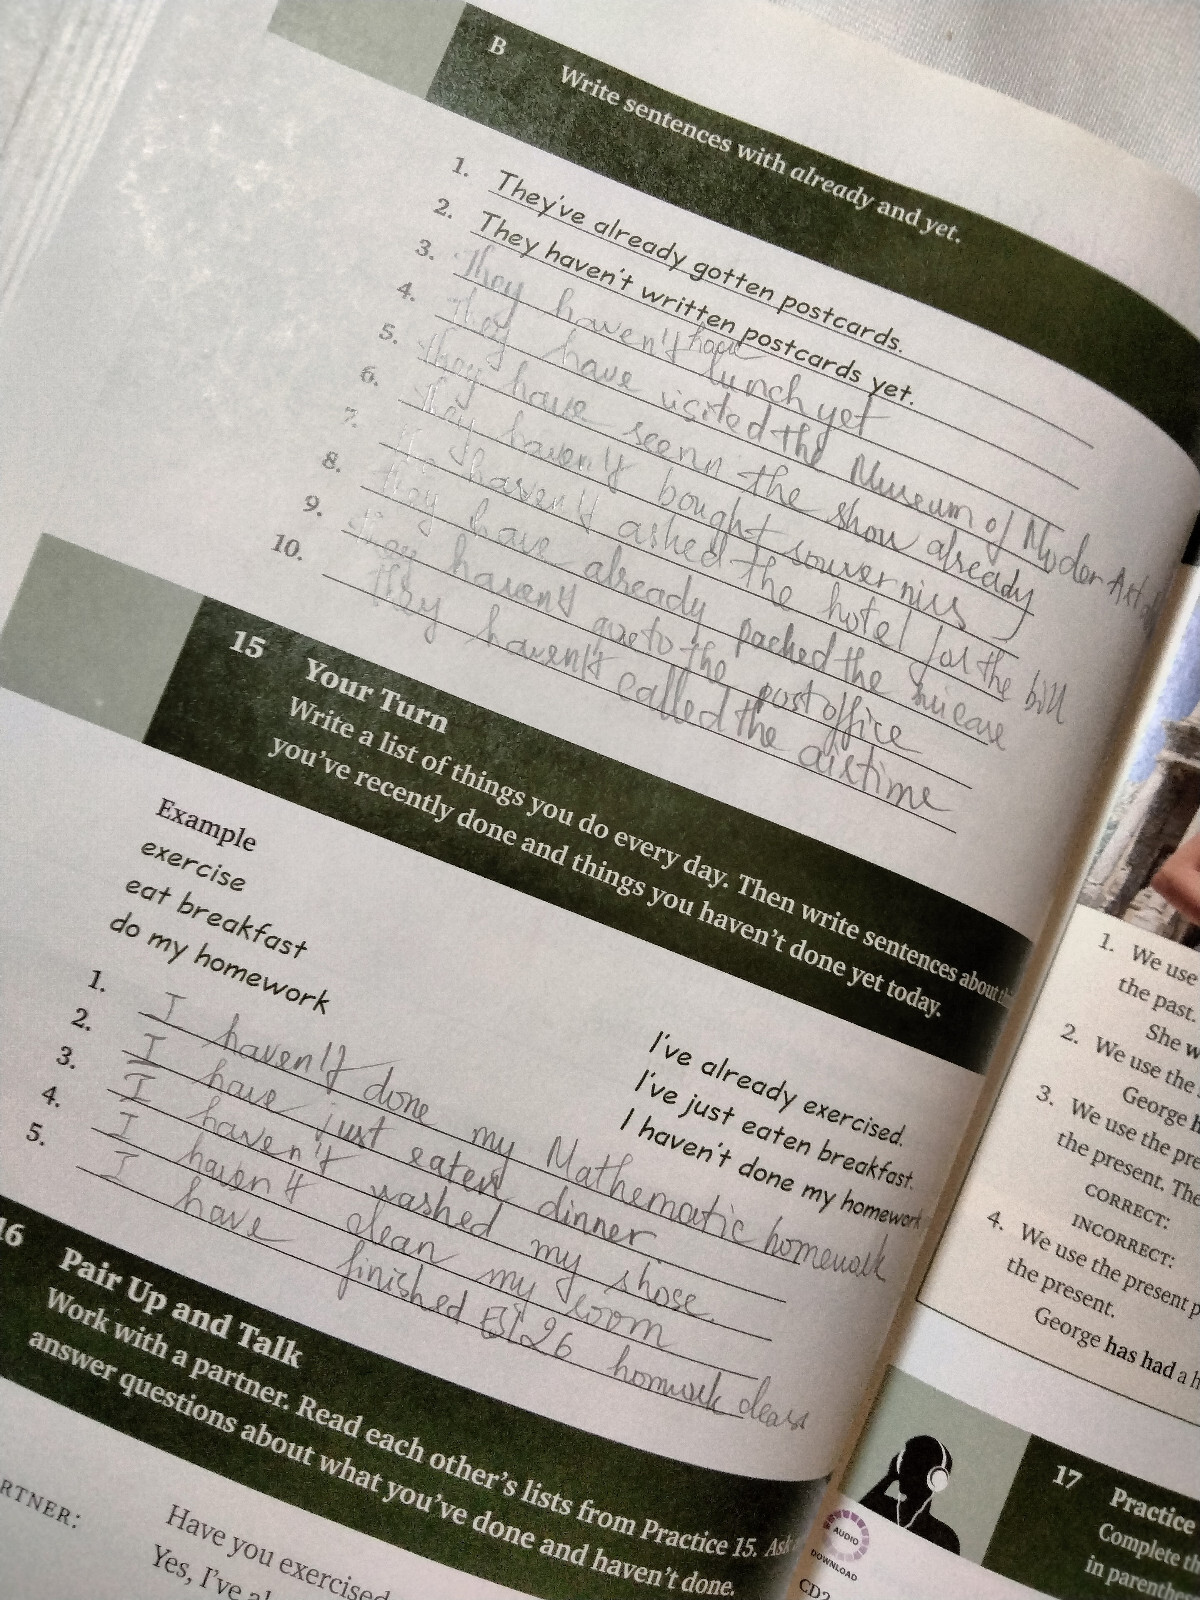 B Write sentences with already and yet.
1. They've already gotten postcards.
2. They haven't written postcards yet.
3. They haven't have lunch yet
4. They have visited the Museum of Moder Art
5. They have seenn the show already
6. They haven't bought souvernirs
7. haven't ashed the hotel for the bill
8. They have already pached the
9. They havent goe to the post office
10. They haven't called the airtime
15 Your Turn
Write a list of things you do every day. Then write sentences about
you've recently done and things you haven't done yet today.
Example
exercise
eat breakfast
do my homework
I've already exercised.
I've just eaten breakfast.
I haven't done my homework
1. I haven't done my Mathematic homework
2. I have just eaten dinner
3. I haven't washed my shose
4. I haven't clean my room
5. I have finished ESL26 homwork
16 Pair Up and Talk
Work with a partner. Read each other's lists from Practice 15. Ask
answer questions about what you've done and haven't done.
RTNER: Have you exercised
Yes, I've al
1. We use
the past.
She w
2. We use the
George h
3. We use the pre
the present. The
CORRECT:
INCORRECT:
4. We use the present p
the present.
George has had a h
AUDIO
DOWNLOAD
CD2
17 Practice
Complete th
in parenthes